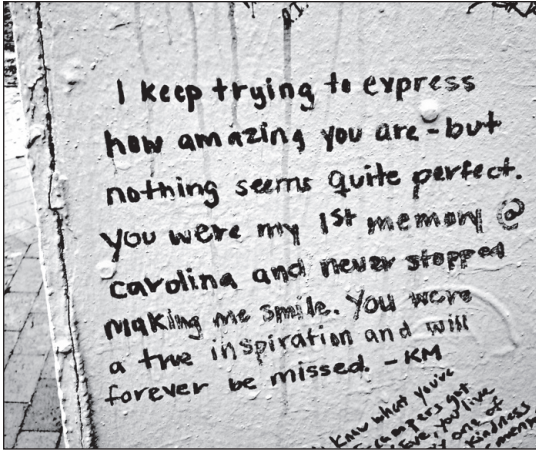 I keep trying to express
how amazing you are - but
nothing seems quite perfect.
You were my 1st memory @
carolina and never stopped
making me smile. You were
a true inspiration and will
forever be missed. - KM
know what you've
got
Eve, you live
one of
kindness